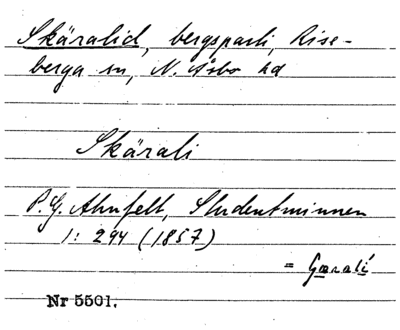 Skäralid, bergsparti, Rise-
berga sn, N. Åsbo hd
Skärali
P. G. Ahnfelt, Studentminnen
1: 294 (1857)
= Gærali
Nr 5501.